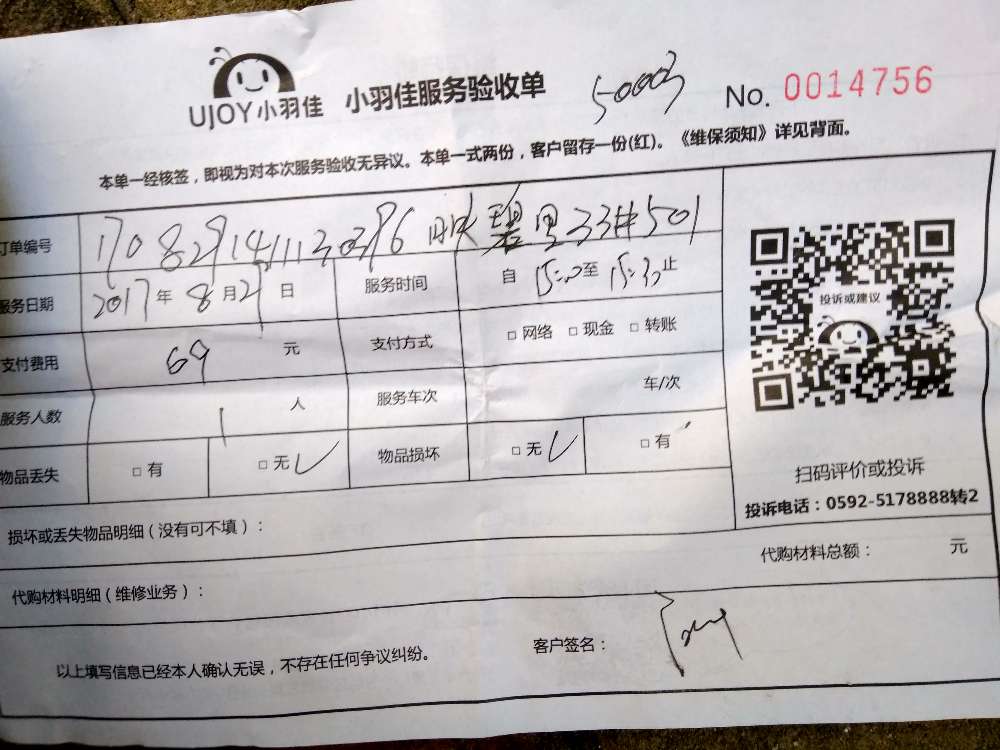 UJOY小羽佳 小羽佳服务验收单 50003 No. 0014756
本单一经核签，即视为对本次服务验收无异议。本单一式两份，客户留存一份(红)。《维保须知》详见背面。
订单编号 碧里33#501
服务日期 2017年8月29日 服务时间 自 至 止
支付费用 69 元 支付方式 □网络 □现金 □转账
服务人数 1 人 服务车次 车/次
物品丢失 □有 □无 物品损坏 □无 □有
投诉或建议
扫码评价或投诉
投诉电话：0592-5178888转2
损坏或丢失物品明细（没有可不填）：
代购材料总额： 元
代购材料明细（维修业务）：
以上填写信息已经本人确认无误，不存在任何争议纠纷。 客户签名：